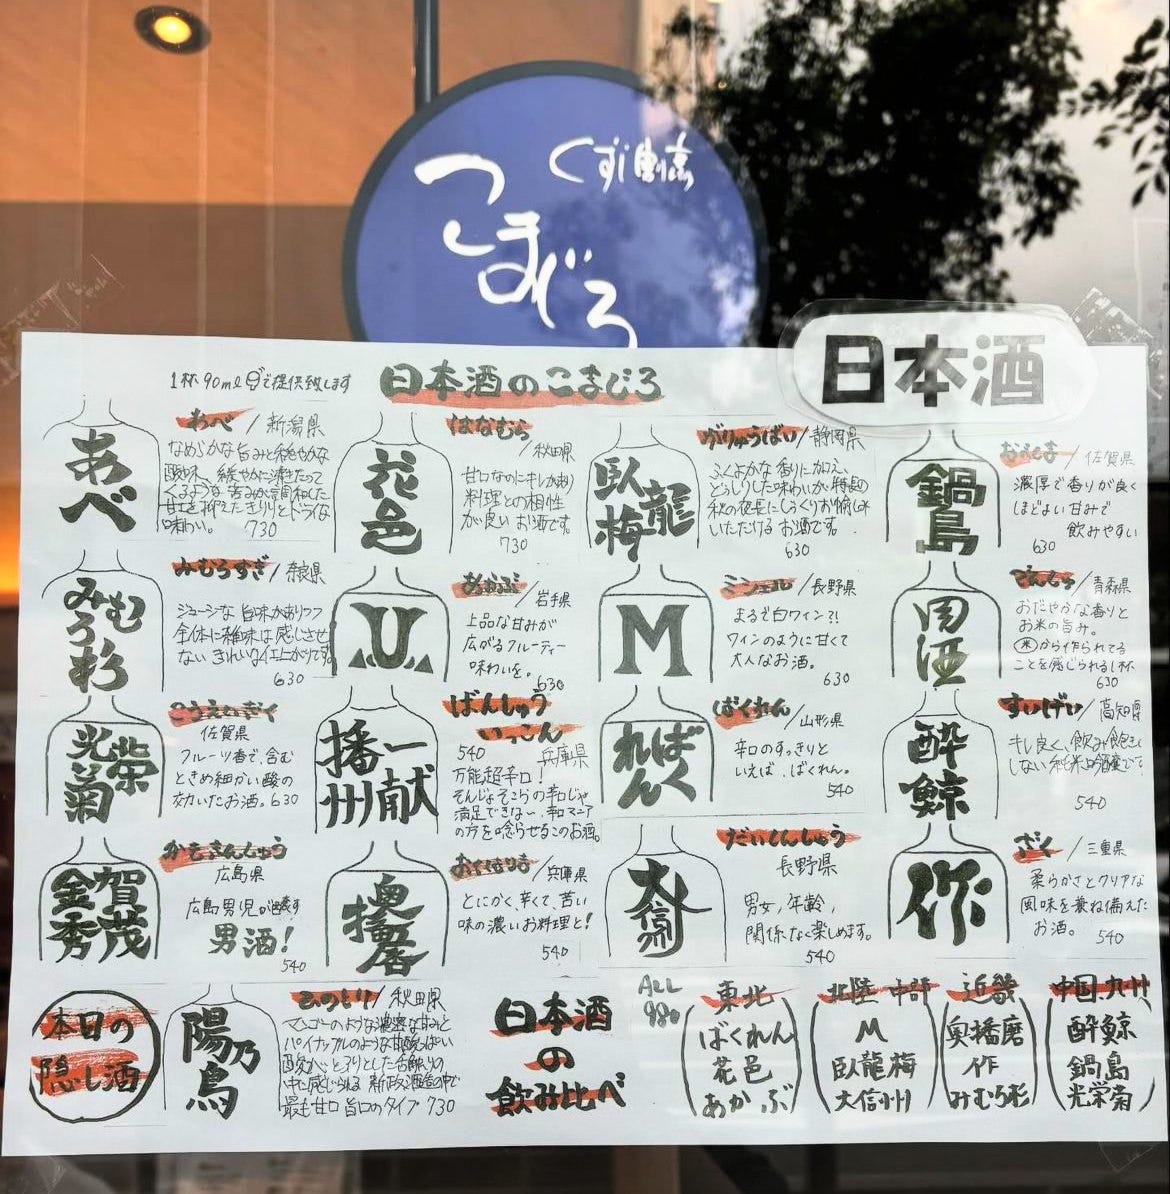 くずし割烹
こまじろ
日本酒
1杯90mlで提供致します
日本酒のこまじろ
あべ
あべ/新潟県
なめらかな旨みと穏やかな
酸味、緩やかに沸きたって
くるような苦みが調和した
甘を抑えたきりりとドライな
味わい。
730
花邑
はなむら
/秋田県
甘口なのにキレがあり
料理との相性
が良いお酒です。
730
臥龍梅
がりゅうばい/静岡県
ふくよかな香りに加え、
どっしりした味わいが特長の
秋の夜長にじっくりお愉しみ
いただけるお酒です。
630
鍋島
なべしま/佐賀県
濃厚で香りが良く
ほどよい甘みで
飲みやすい
630
みむろ杉
みむろすぎ/奈良県
ジューシな旨味がありつつ
全体に雑味は感じさせ
ないきれいな仕上がりです。
630
U
あかぶ/岩手県
上品な甘みが
広がるフルーティー
味わいを。630
M
ミシェル/長野県
まるで白ワイン?!
ワインのように甘くて
大人なお酒。
630
田酒
でんしゅ/青森県
おだやかな香りと
お米の旨み。
米から作られてる
ことを感じられる1杯
630
光栄菊
こうえいぎく
佐賀県
フルーツ香で、含む
ときめ細かい酸の
効いたお酒。630
播州一献
ばんしゅう
いっこん
540 兵庫県
万能超辛口!
そんじょそこらの辛口じゃ
満足できない、辛口マニア
の方を唸らせるこのお酒。
ばくれん
ばくれん/山形県
辛口のすっきりと
いえば、ばくれん。
540
酔鯨
すいげい/高知県
キレ良く、飲み飽き
しない純米吟醸
540
賀茂金秀
かもきんしゅう
広島県
広島男児が醸す
男酒!
540
奥播磨
おくはりま/兵庫県
とにかく、辛くて、苦い
味の濃いお料理と!
540
大信州
だいしんしゅう
長野県
男女,年齢,
関係なく楽しめます。
540
作
ざく/三重県
柔らかさとクリアな
風味を兼ね備えた
お酒。540
本日の
隠し酒
陽乃鳥
ひのとり/秋田県
マンゴーのような濃密な甘みと
パイナップルのような甘酸っぱい
酸が、とろりとした舌触りの
中に感じられる 新政酒造の中で
最も甘口 旨口のタイプ 730
日本酒
の
飲み比べ
ALL
980
東北
ばくれん
花邑
あかぶ
北陸 中部
M
臥龍梅
大信州
近畿
奥播磨
作
みむろ杉
中国,九州
酔鯨
鍋島
光栄菊